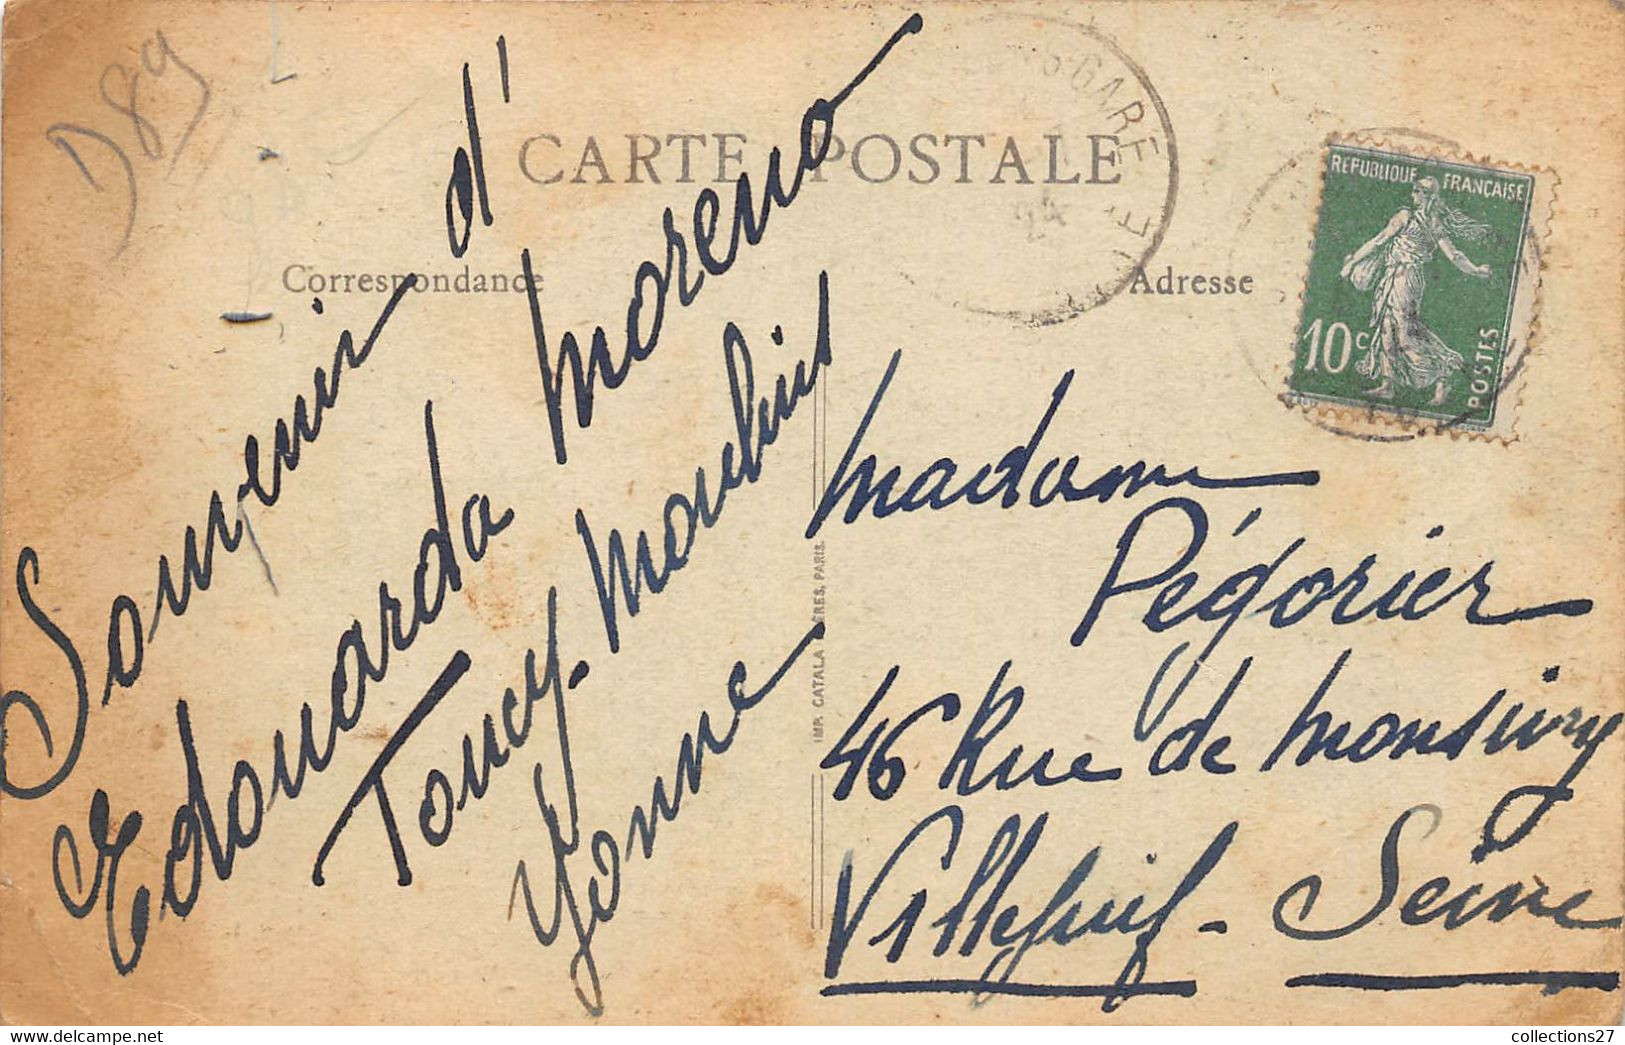 D89
CARTE POSTALE
Correspondance
Adresse
GARE
24
RÉPUBLIQUE FRANÇAISE
10c
POSTES
Souvenir d'
Edouarda Moreno
Toucy-Moulins
Yonne
IMP. CATALA FRERES, PARIS.
Madame
Pégorier
46 Rue de Monsivry
Villejuif - Seine
collections27